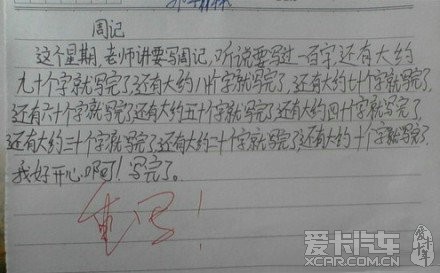 周记
这个星期,老师讲要写周记,听说要写过一百字,还有大约
九十个字就写完了,还有大约八十个字就写完了,还有大约七十个字就写完了,
还有六十个字就写完了,还有大约五十个字就写完了,还有大约四十个字就写完了,
还有大约三十个字就写完了,还有大约二十个字就写完了,还有大约十个字就写完了,
我好开心啊!写完了。
重写!
爱卡汽车
XCAR.COM.CN